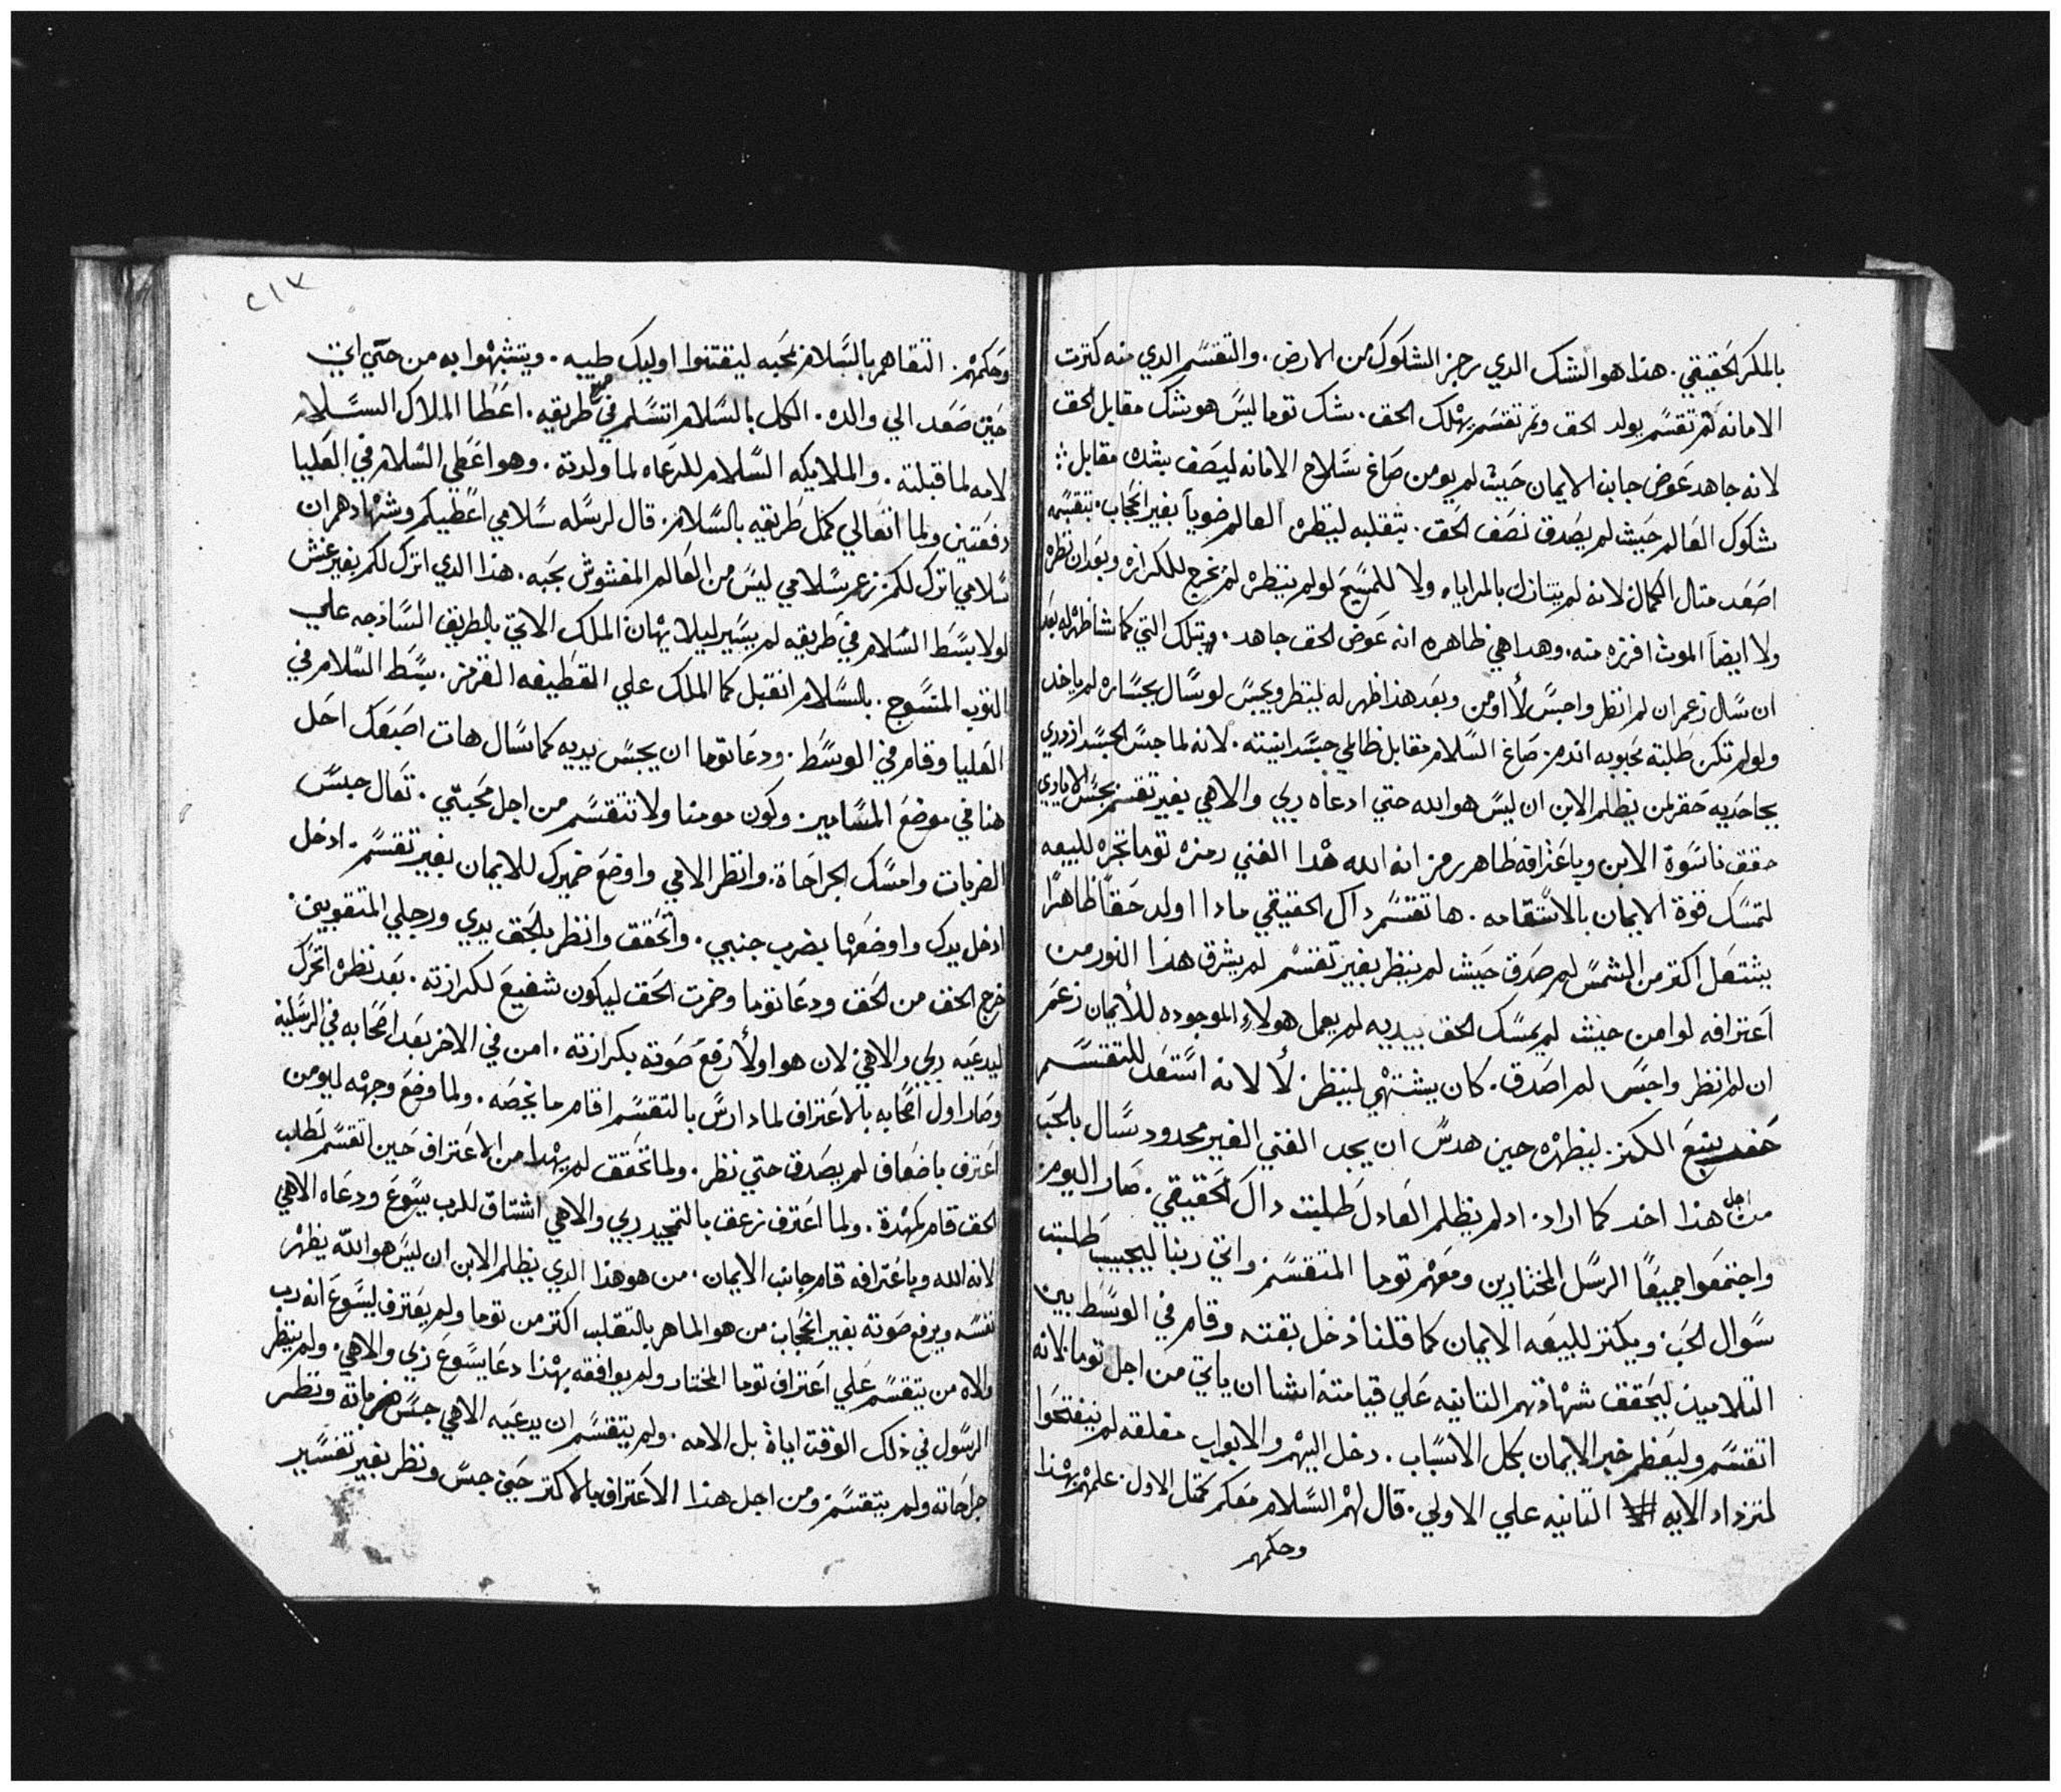 بالمكر الحقيقي. هذا هو الشك الدي رجز الشكوك من الارض. والتقسم الدي منه كترت
الامانه ثم تقسم يولد الحق وثم تقسم يهلك الحق. شك توما ليس هو شك مقابل الحق
لانه جاهد عوض جانب الايمان حيث لم يومن صاغ سلاح الامانه ليصف بشك مقابل
شكوك العالم حيث لم يصدق نصف الحق. بتقلبه لينظره العالم ضوياً بغير انحجاب. بتقسمه
اصعد متال الكمال لانه لم يتنازل بالمراياه ولا للمسيح لو لم ينظره لم يخرج للكرازه وبعد ان نظره
ولا ايضاً الموت افرزه منه. وهدا هي ظاهره انه عوض الحق جاهد. وبتلك التي كما شا ظهر له بعد
ان سال زعم ان لم انظر واجس لا اومن وبعد هذا ظهر له لينظر ويجس لو سال بجساره لم ياخد
ولو لم تكن طلبته محبوبه صاغ السلام مقابل ظالمي جسد ابنته. لانه لما جس الجسد ازدري
بجاحديه حقر لمن يظلم الابن ان ليس هو الله حتي ادعاه ربي والاهي بغير تقسم بجس الايادي
حقق ناسوة الابن وباعترافه ظاهر رمز انه الله هذا الغني رمزه توما تجره للبيعه
لتمسك قوة الايمان بالاستقامه. ها تقسم داك الحقيقي مادا اولد حقاً ظاهرًا
يشتعل اكتر من الشمس لم صدق حيث لم ينظر بغير تقسم لم يشرق هذا النور من
اعترافه لو امن حيث لم يمسك الحق بيديه لم يعمل هولاء الموجوده للايمان زعم
ان لم انظر واجس لم اصدق. كان يشتهي لينظر. لا لانه استعد للتقسم
ينبع الكنز. لينظره حين هدس ان يجد الغني الغير محدود سال بالحب
من اجل هذا اخد كما اراد. اد لم يظلم العادل طلبت داك الحقيقي. صار اليوم
واجتمعوا جميعًا الرسل المختارين ومعهم توما المتقسم واتي ربنا ليجيب طلبت
سوال الحب ويكنز للبيعه الايمان كما قلنا دخل بغتة وقام في الوسط بين
التلاميد ليحقق شهادتهم التانيه علي قيامته انشا ان ياتي من اجل توما لانه
اتقسم وليعظم خبر الايمان بكل الاسباب. دخل اليهم والابواب مغلقه لم ينفتحوا
لتزداد الايه التانيه علي الاولي. قال لهم السلام معكم كمتل الاول. علمهم بهذا
وحكمهم
٢١٧
وحكمهم. اتقاهم بالسلام بمحبه ليقتنوا اوليك طيبه. ويتشبهوا به من حتي اتي
حين صعد الي والده. الكل بالسلام اتسلم في طريقه. اعطا الملاك السلام
لامه لما قبلته. والملايكه السلام للرعاه لما ولدته. وهو اعطي السلام في العليا
دفعتين ولما اتعالي كمل طريقه بالسلام. قال لرسله سلامي اعطيكم وشهادهم ان
سلامي اترك لكم زعم سلامي ليس من العالم المغشوش بحبه. هذا الدي اترك لكم بغير غش
لولا بسط السلام في طريقه لم يسير ليلا يهان الملك الاتي بالطريق السادجه علي
التوب المنسوج. بالسلام اتقبل كما الملك علي القطيفه القرمز. بسط السلام في
العليا وقام في الوسط. ودعا توما ان يجس يديه كما سال هات اصبعك احل
هنا في موضع المسامير. وكون مومنا ولا تتقسم من اجل محبتي. تعال جس
الضربات وامسك الجراحاة. وانظر الامي واوضع ضميرك للايمان بغير تقسم. ادخل
ادخل يدك واوضعها بضرب جنبي. واتحقق وانظر بالحق يدي ورجلي المتقوبين.
خرج الحق من الحق ودعا توما وخمرت الحق ليكون شفيع لكرازته. بعد نظره اتحرك
ليدعيه ربي والاهي لان هو اولاً رفع صوته بكرازته. امن في الاخر بعد اصحابه في الرسليه
وصار اول اصحابه بالاعتراف لما دارس بالتقسم اقام ما يخصه. ولما وضع وجهه ليومن
اعترف باضعاف لم يصدق حتي نظر. ولما تحقق لم يهدا من الاعتراف حين اتقسم لطلب
الحق قام كمهدة. ولما اعترف زعق بالتمجيد ربي والاهي اشتاق للرب يسوع ودعاه الاهي
لانه الله وباعترافه قام جانب الايمان. من هو هذا الدي يظلم الابن ان ليس هو الله يظهر
نفسه ويرفع صوته بغير انحجاب من هو الماهر بالتقلب اكتر من توما ولم يعترف ليسوع انه رب
والاه من يتقسم علي اعتراف توما المختار ولم يوافقه بهذا دعا يسوع ربي والاهي. ولم ينظر
الرسول في ذلك الوقت اياة بل الامه. ولم يتقسم ان يدعيه الاهي جس ضرباته ونظر
جراحاته ولم يتقسم ومن اجل هذا الاعتراف بالاكتر حين جس ونظر بغير تفسير